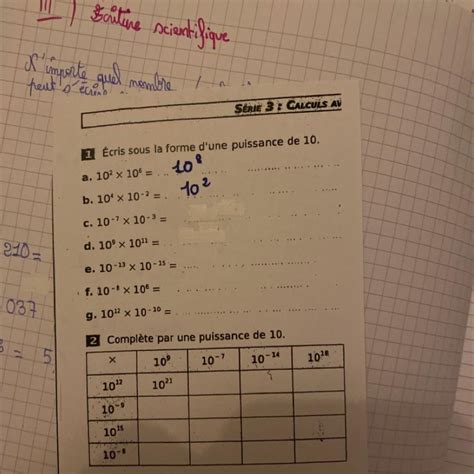 III ) Ecriture scientifique
N'importe quel nombre
peut s'écri
SÉRIE 3 : CALCULS AV
1 Écris sous la forme d'une puissance de 10.
a. 10² × 10⁶ = 10⁸
b. 10⁴ × 10⁻² = 10²
c. 10⁻⁷ × 10⁻³ =
d. 10⁹ × 10¹¹ =
e. 10⁻¹³ × 10⁻¹⁵ =
f. 10⁻⁸ × 10⁶ =
g. 10¹² × 10⁻¹⁰ =
210 =
037
= 5
2 Complète par une puissance de 10.
× 10⁹ 10⁻⁷ 10⁻¹⁴ 10¹⁸
10¹² 10²¹
10⁻⁹
10¹⁵
10⁻⁸